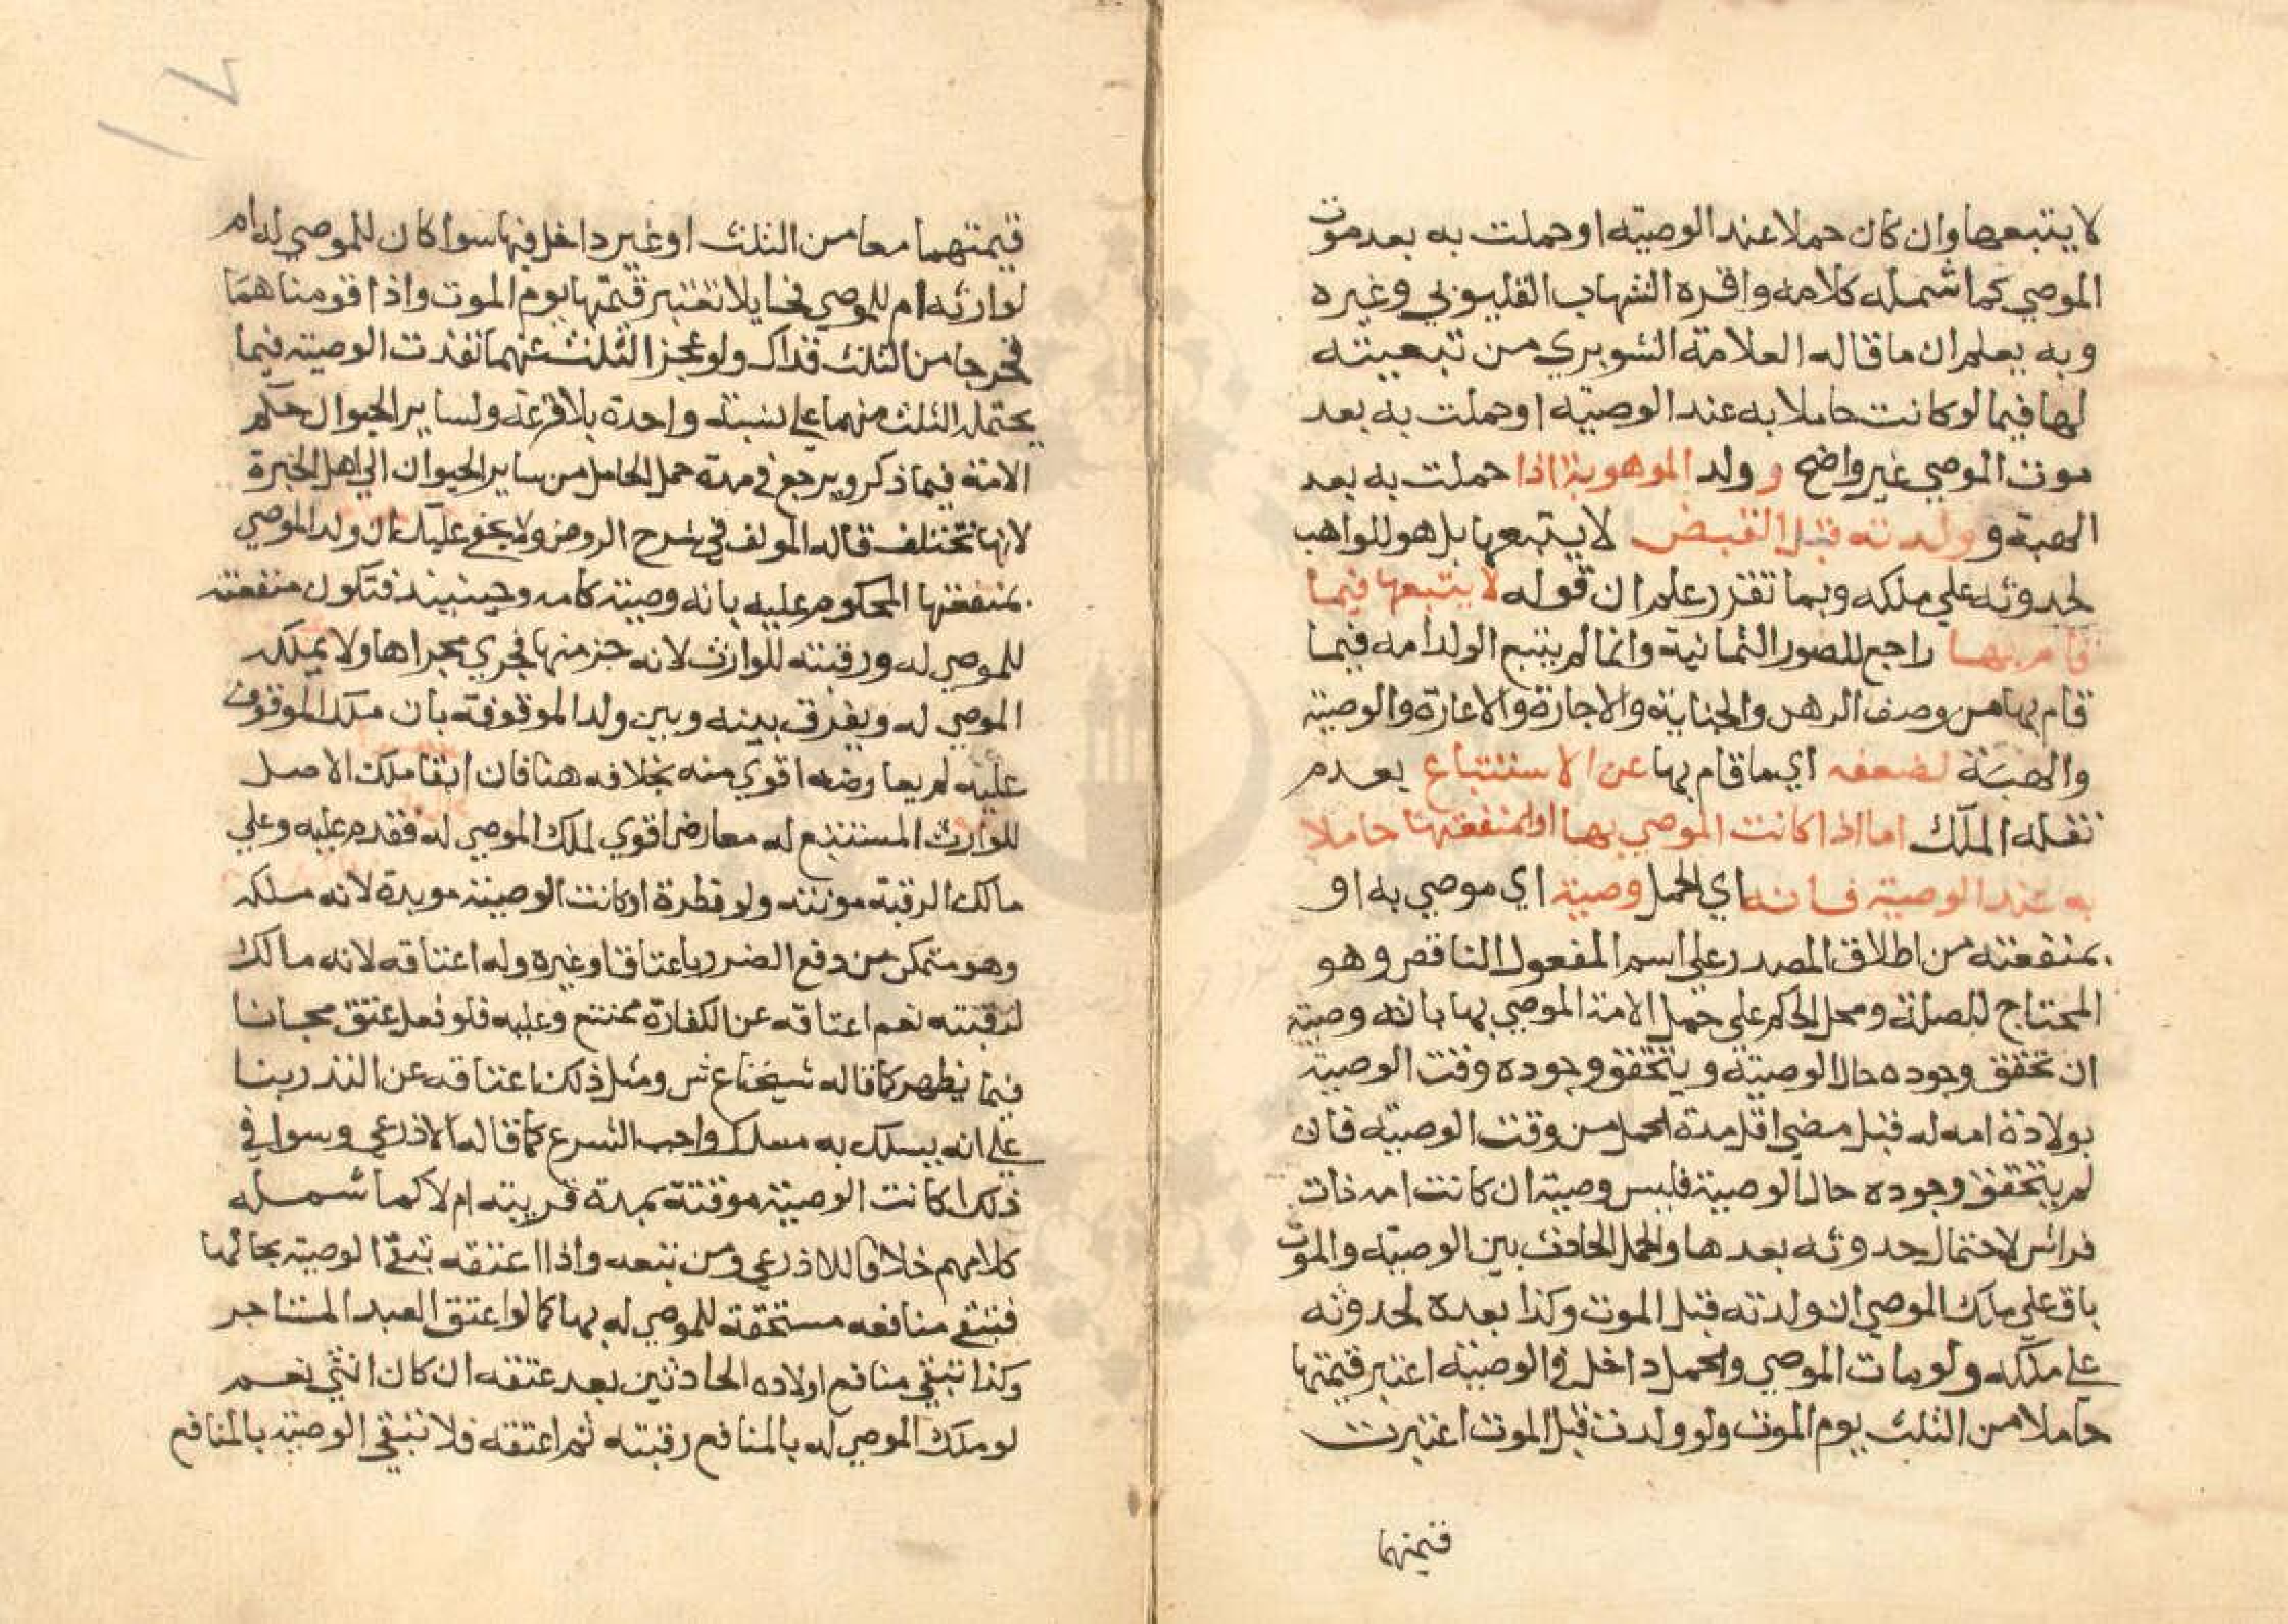 لا يتبعها وان كان حملا عند الوصية او حملت به بعد موت
الموصي كما شمله كلامه واقره الشهاب القليوبي وغيره
وبه يعلم ان ما قاله العلامة الشوبري من تبعيته
لها فيما لو كانت حاملا به عند الوصية او حملت به بعد
موت الموصي غير واضح و ولد الموهوبة اذا حملت به بعد
الهبة و ولدته قبل القبض لا يتبعها بل هو للواهب
لحدوثه علي ملكه وبما تقرر علم ان قوله لا يتبعها فيما
قام بها راجع للصور الثمانية وانما لم يتبع الولد امه فيما
قام بها من وصف الرهن والجناية والاجارة والاعارة والوصية
والهبة لضعفه اي ما قام بها عن الاستتباع بعدم
نقله الملك اما اذا كانت الموصي بها او بمنفعتها حاملا
به عند الوصية فانه اي الحمل وصية اي موصي به او
بمنفعته من اطلاق المصدر علي اسم المفعول الناقص وهو
المحتاج للصلة ومحل الحكم علي حمل الامة الموصي بها بانه وصية
ان تحقق وجوده حال الوصية ويتحقق وجوده وقت الوصية
بولادة امه له قبل مضي اقل مدة الحمل من وقت الوصية فان
لم يتحقق وجوده حال الوصية فليس وصية ان كانت امه ذات
فراش لاحتمال حدوثه بعدها والحمل الحادث بين الوصية والموت
باق علي ملك الموصي ان ولدته قبل الموت وكذا بعده لحدوثه
علي ملكه ولو مات الموصي والحمل داخل في الوصية اعتبر قيمتها
حاملا من الثلث يوم الموت ولو ولدت قبل الموت اعتبرت
قيمتهما
قيمتهما معا من الثلث او غير داخل فيها سوا كان للموصي له ام
لوارثه ام للموصي يعتبر قيمتها يوم الموت واذا قومناهما
فخرجا من الثلث فذاك ولو عجز الثلث عنهما نفذت الوصية فيما
يحتمله الثلث منهما علي نسبة واحدة بلا قرعة ولساير الحيوان حكم
الامة فيما ذكر ويرجع في مدة حمل الحامل من ساير الحيوان الي اهل الخبرة
لانها تختلف قاله المولف في شرح الروض ولا يخفي عليك ان ولد الموصي
بمنفعتها المحكوم عليه بانه وصية كامه وحينيذ فتكون منفعته
للموصي له ورقبته للوارث لانه جز منها فجري مجراها ولا يملكه
الموصي له ويفرق بينه وبين ولد الموقوفة بان ملك الموقوف
عليه لم يعارضه اقوي منه بخلافه هنا فان ابقا ملك الاصل
للوارث المستتبع له معارض اقوي لملك الموصي له فقدم عليه وعلي
مالك الرقبة مونته ولو فطرة او كانت الوصية موبدة لانه ملكه
وهو متمكن من دفع الضرر باعتاق او غيره وله اعتاقه لانه مالك
لرقبته نعم اعتاقه عن الكفارة ممتنع وعليه فلو فعل عتق مجانا
فيما يظهر كما قاله شيخنا ع ش ومثل ذلك اعتاقه عن النذر بنا
علي انه يسلك به مسلك واجب الشرع كما قاله الاذرعي وسوا في
ذلك اكانت الوصية موقتة بمدة قريبة ام لا كما شمله
كلامهم خلافا للاذرعي ومن تبعه واذا اعتقه تبقي الوصية بحالها
فتبقي منافعه مستحقة للموصي له بها كما لو اعتق العبد المستاجر
وكذا تبقي منافع اولاده الحادثين بعد عتقه ان كان انثي نعم
لو ملك الموصي له بالمنافع رقبته ثم اعتقه فلا تبقي الوصية بالمنافع